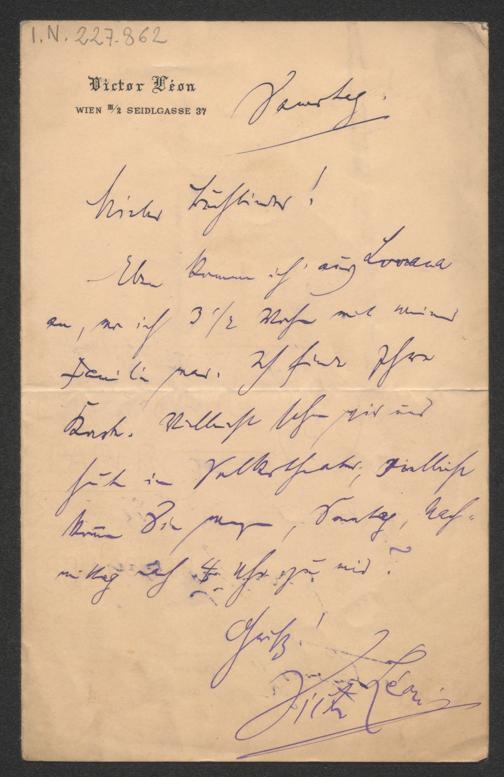 I.N. 227.862
Victor Léon
WIEN III/2 SEIDLGASSE 37
Samstag.
Lieber !
Eben komme ich aus Lovrana
an, wo ich 3 1/2 Wochen mit meiner
Familie war. Ich finde Ihre
Karte. Vielleicht sehen wir uns
heute im Volkstheater, vielleicht
kommen Sie morgen, Sonntag, Nach-
mittag nach 4 Uhr zu mir?
Gruß!
Victor Léon